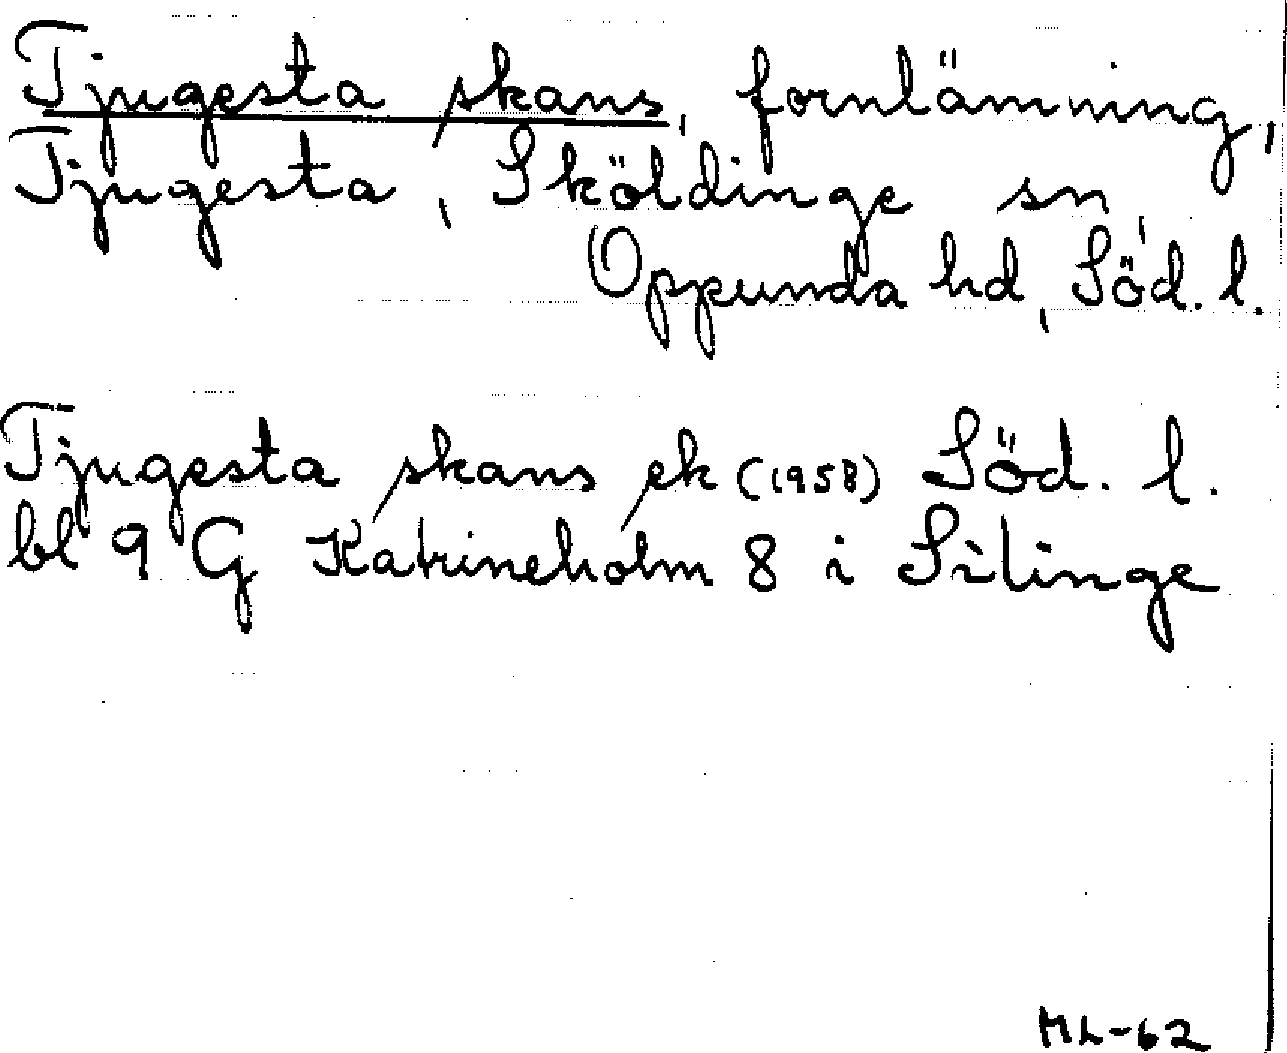 Tjugesta skans, fornlämning,
Tjugesta, Sköldinge sn,
Oppunda hd, Söd. l.
Tjugesta skans ek (1958) Söd. l.
bl 9 G Katrineholm 8 i Silinge
ML-62